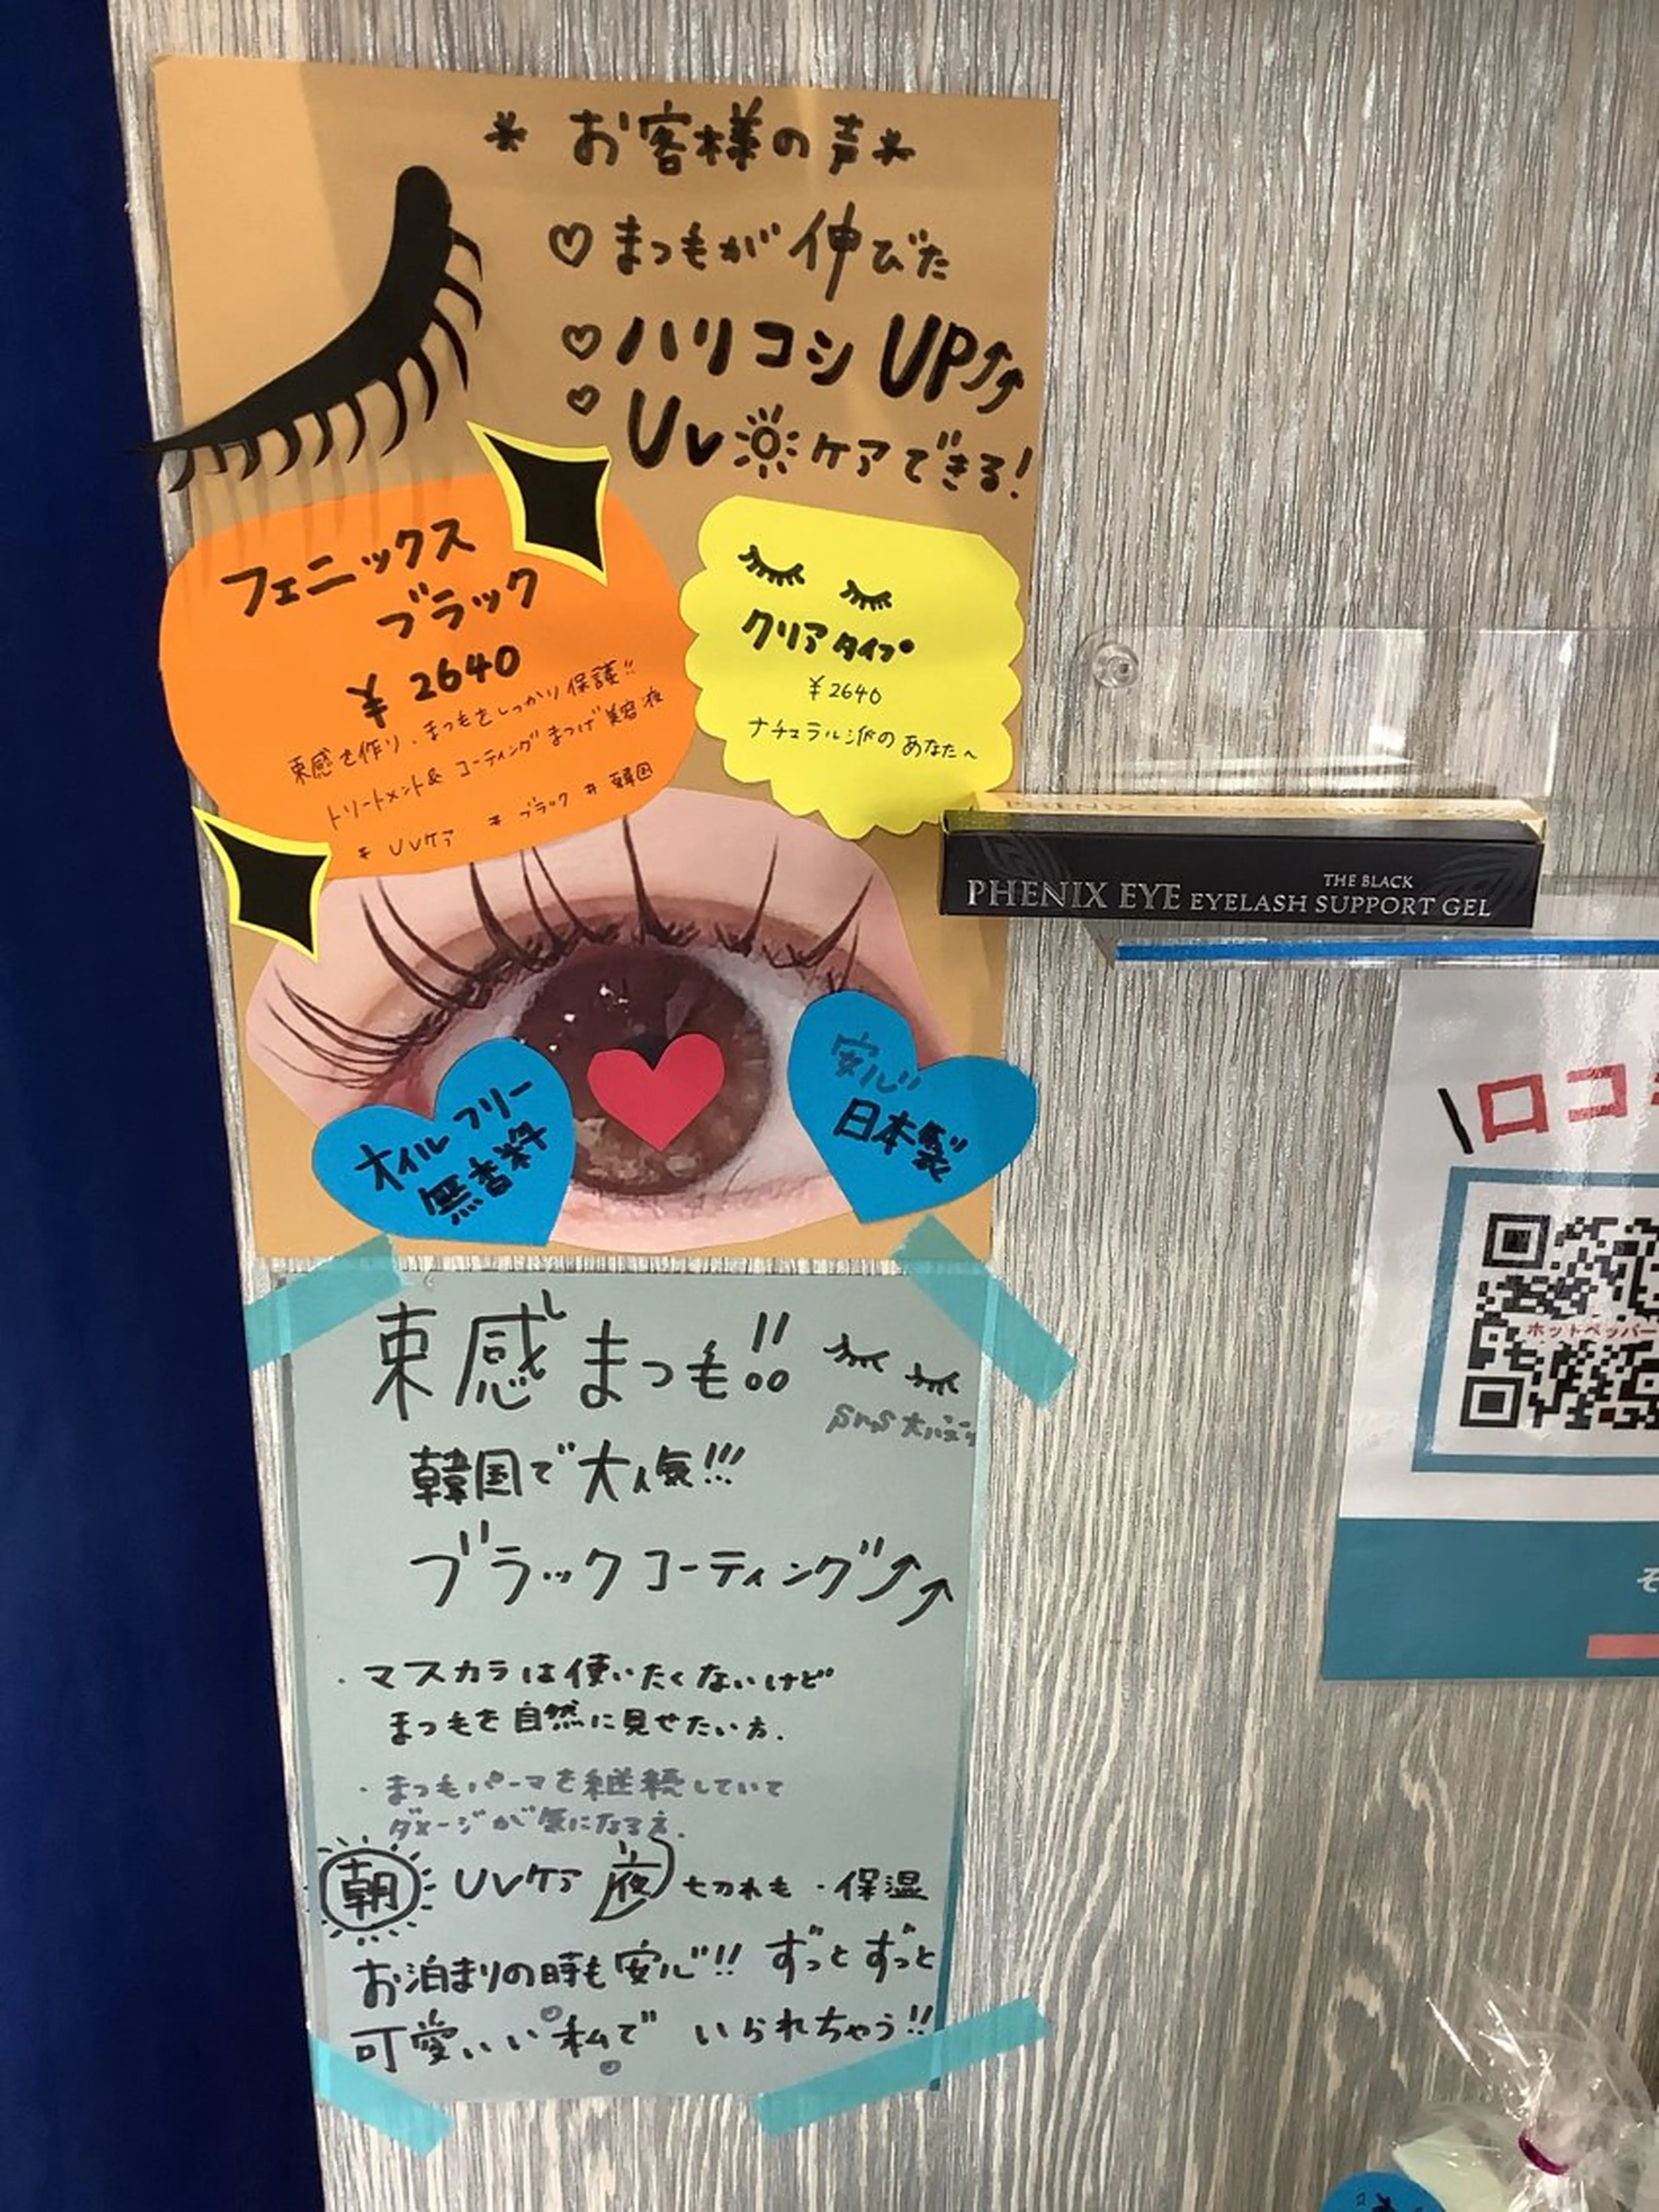 * お客様の声 *
♡ まつもが伸びた
♡ ハリコシUP⤴⤴
♡ Uv☀ケアできる!
フェニックス
ブラック
¥2640
束感を作り、まつもをしっかり保護!!
トリートメント& コーティングまつげ美容液
# UVケア # ブラック # 韓国
クリアタイプ
¥2640
ナチュラル派のあなたへ
THE BLACK
PHENIX EYE EYELASH SUPPORT GEL
オイルフリー
無香料
安心
日本製
口コ
ホットペッパー
そ
束感まつも!!
SNS大バズリ
韓国で大人気!!!
ブラックコーティング⤴⤴
・マスカラは使いたくないけど
まつもを自然に見せたい方.
・まつもパーマを継続していて
ダメージが気になる方.
朝 UVケア 夜 切れも・保湿
お泊まりの時も安心!! ずっとずっと
可愛いい私で いられちゃう!!